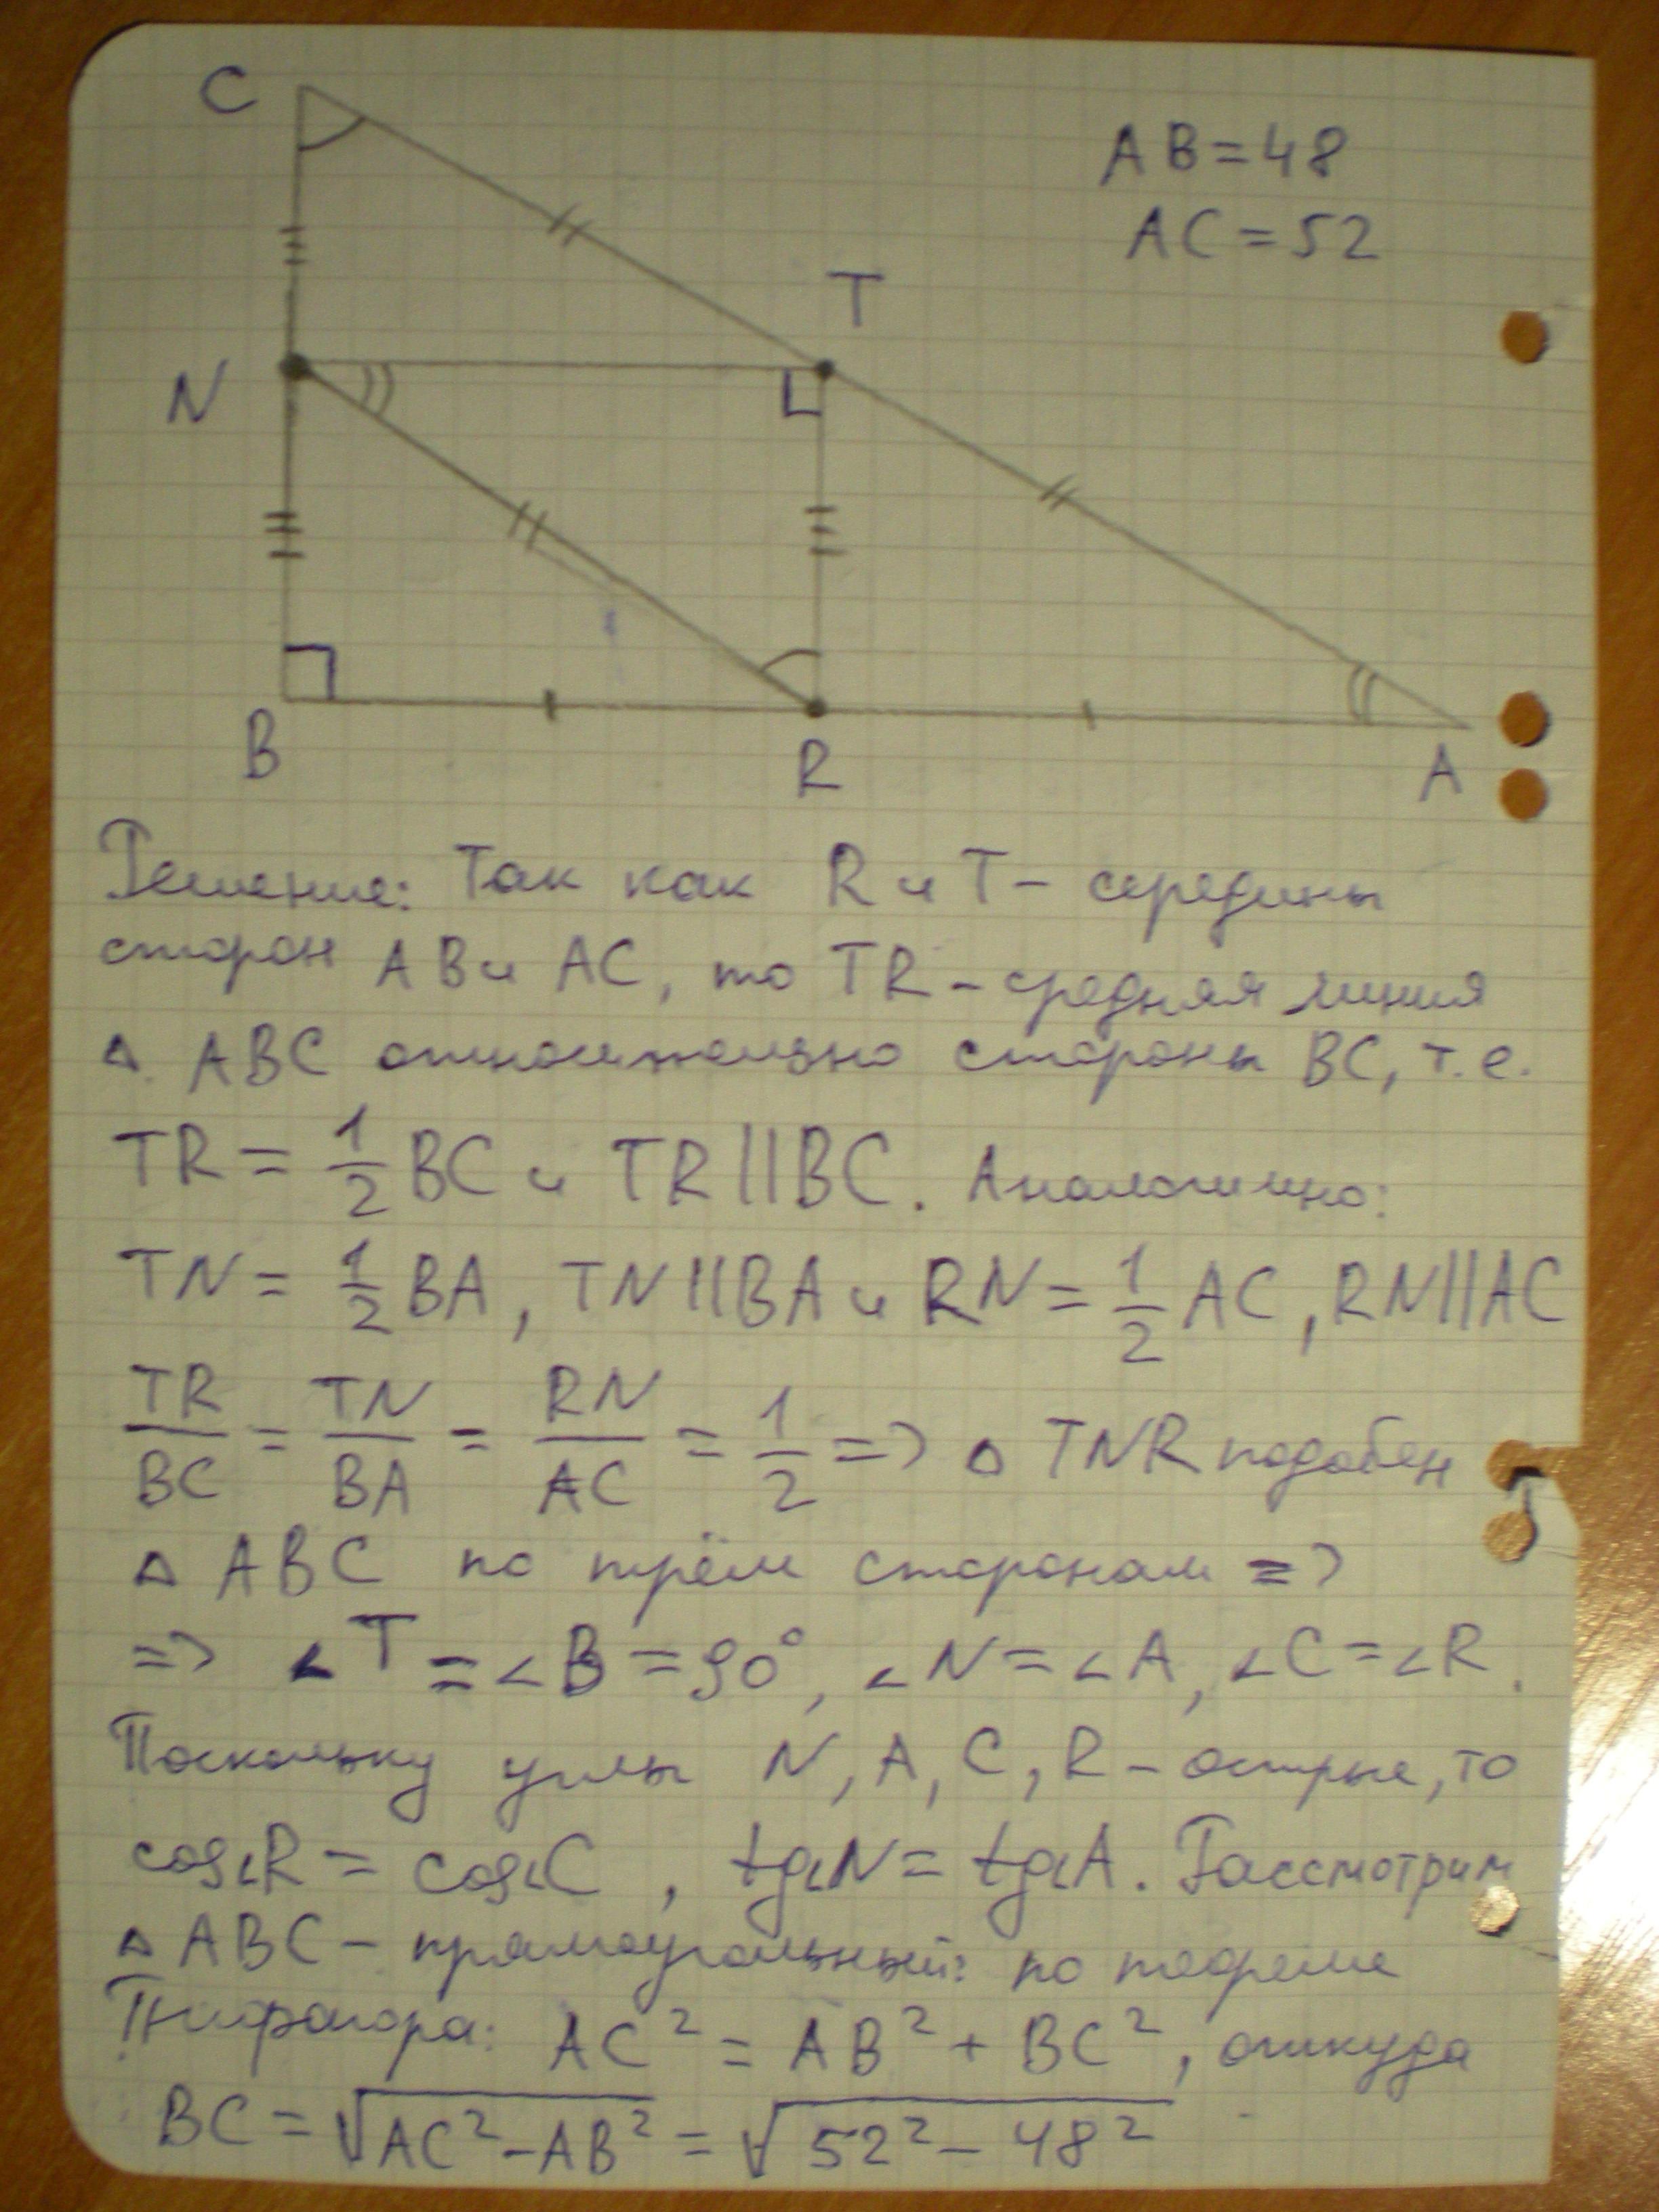 C
AB=48
AC=52
T
N
B
R
A
Решение: Так как R и T - середины
сторон AB и AC, то TR - средняя линия
△ ABC относительно стороны BC, т.е.
TR = 1/2 BC и TR || BC. Аналогично:
TN = 1/2 BA, TN || BA и RN = 1/2 AC, RN || AC
TR/BC = TN/BA = RN/AC = 1/2 => △ TNR подобен
△ ABC по трём сторонам =>
=> ∠T = ∠B = 90°, ∠N = ∠A, ∠C = ∠R.
Поскольку углы N, A, C, R - острые, то
cos∠R = cos∠C, tg∠N = tg∠A. Рассмотрим
△ ABC - прямоугольный: по теореме
Пифагора: AC² = AB² + BC², откуда
BC = √(AC² - AB²) = √(52² - 48²)